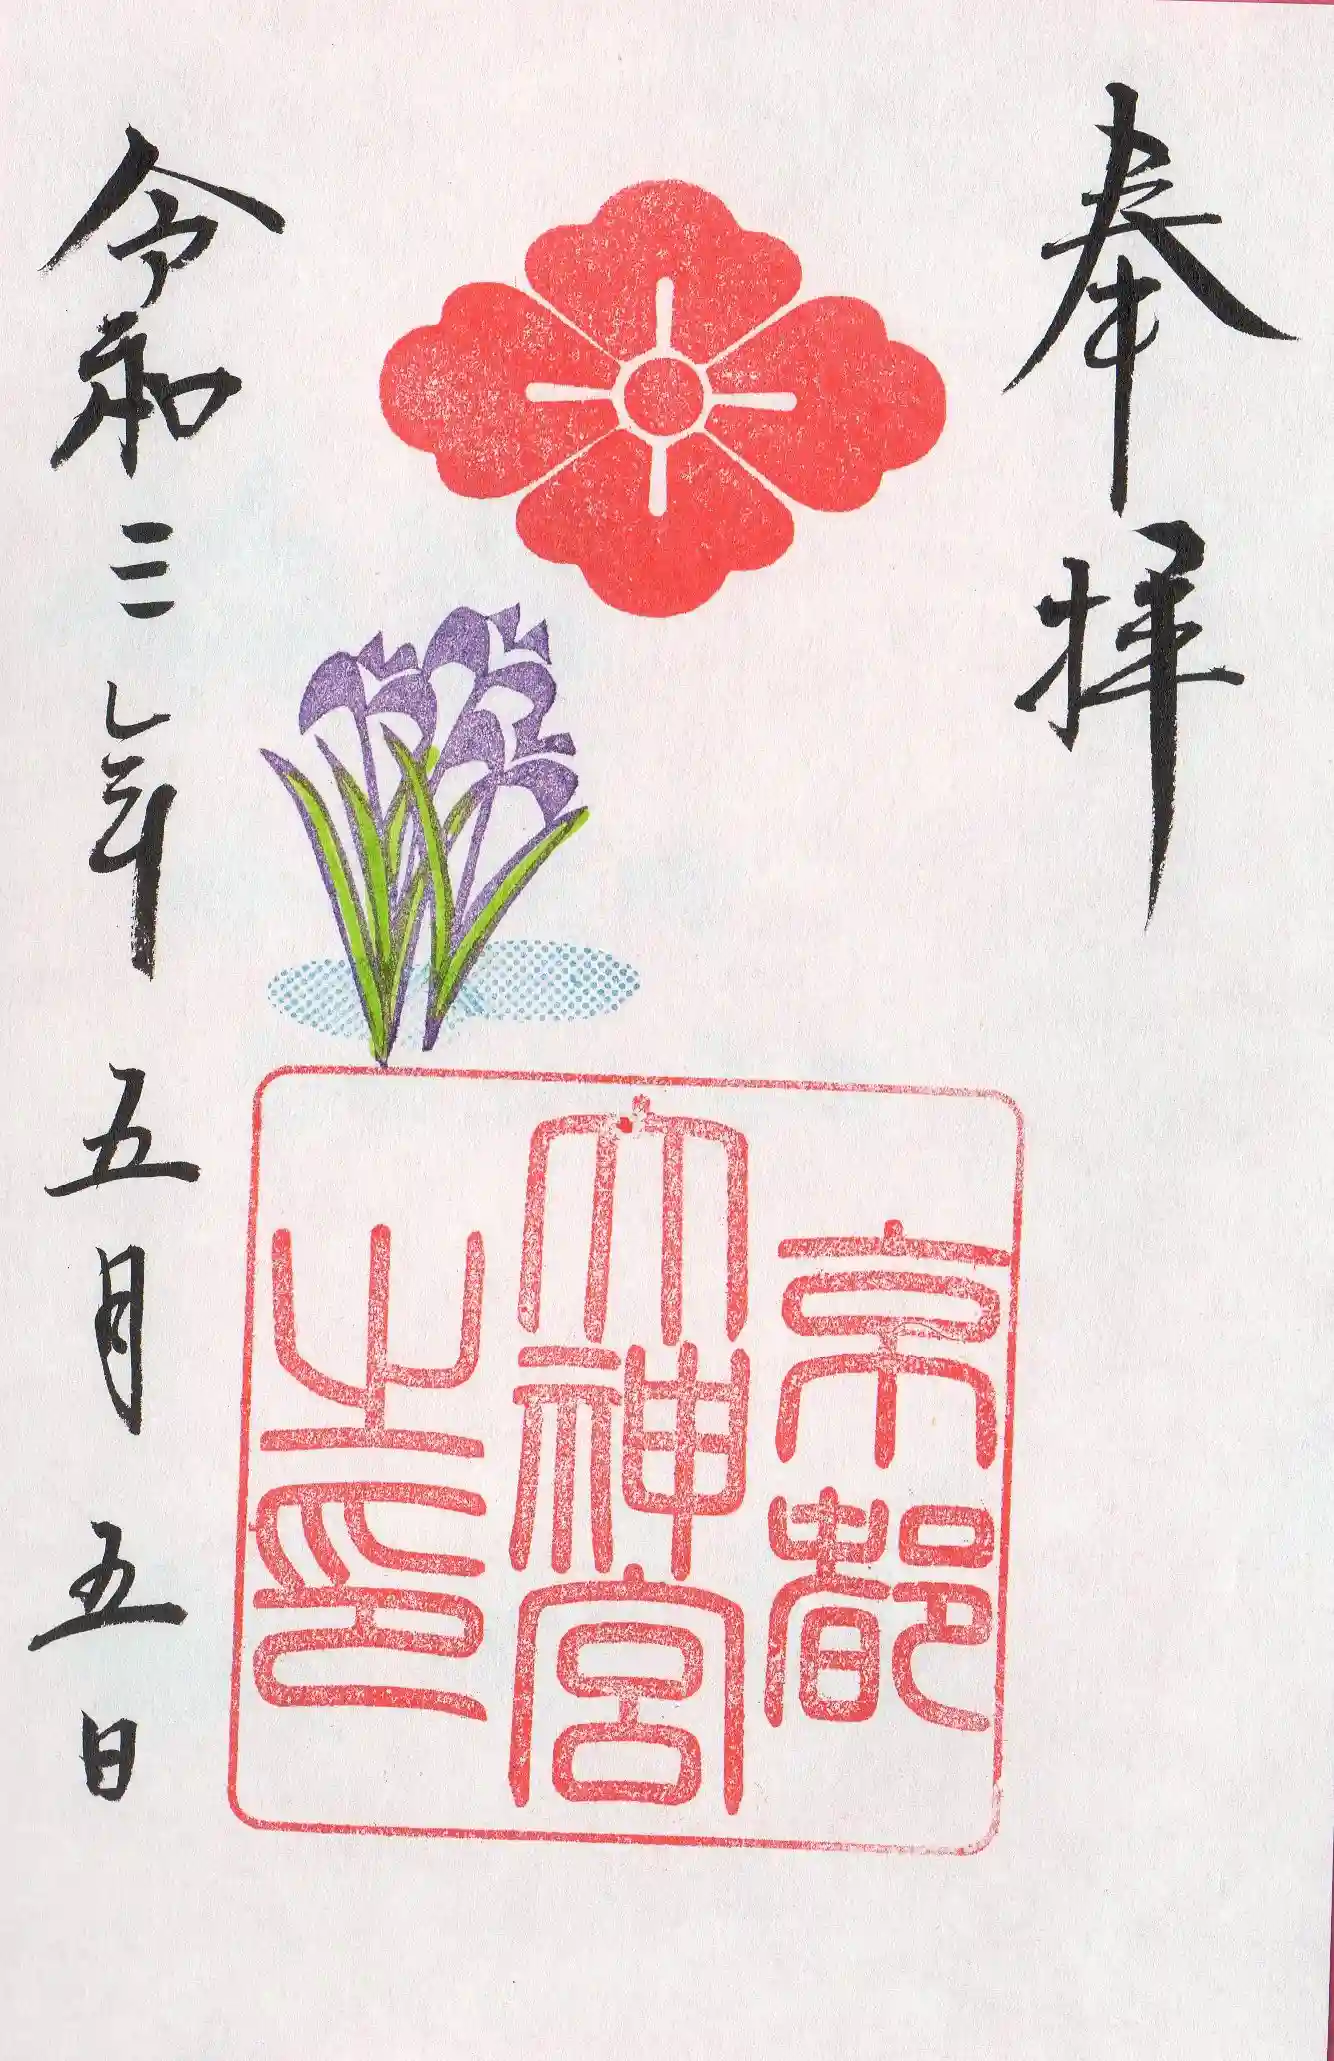 奉拝
京都
大神宮
之印
令和三年五月五日